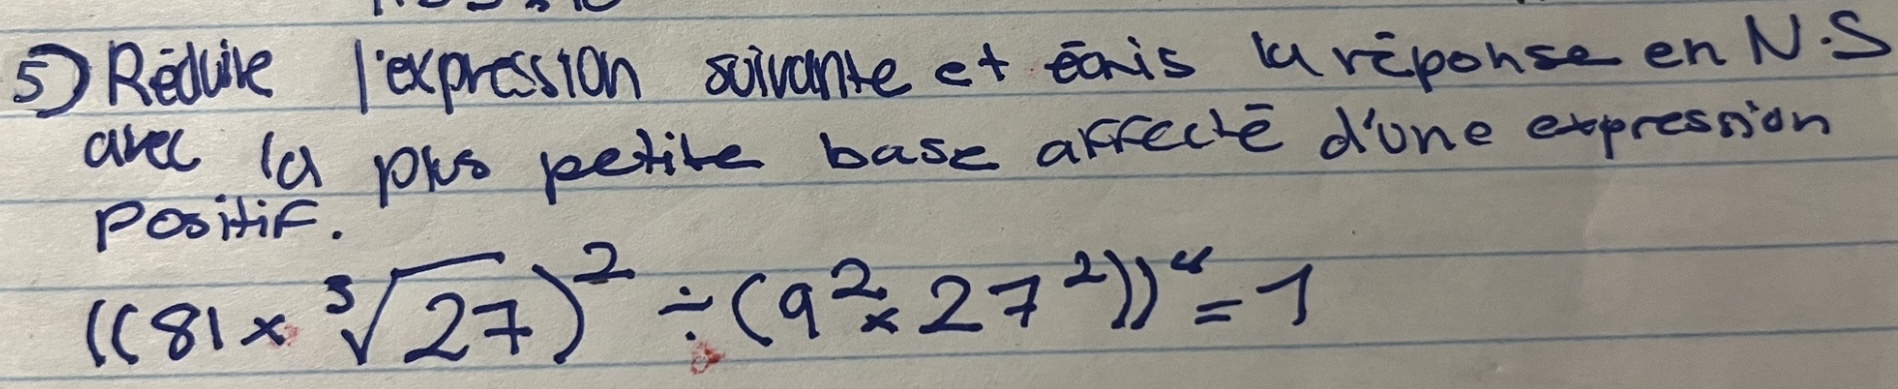 5) Réduire l'expression suivante et écris la réponse en N.S
avec la plus petite base affecté d'une expression
positif.
((81 × ³√27)² ÷ (9² × 27²))⁴ = 1